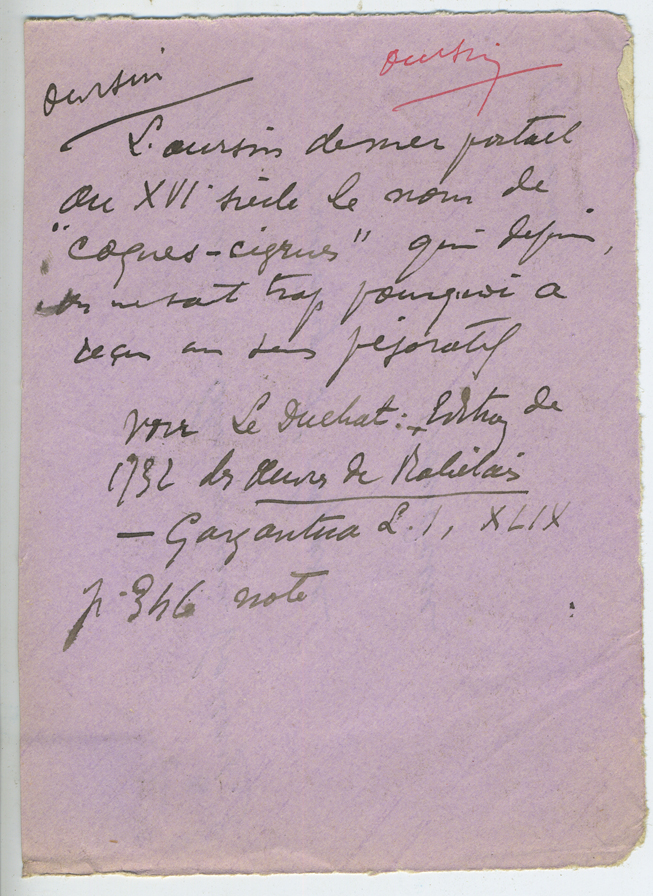 oursin
oursin
L'oursin de mer portait
au XVIe siècle le nom de
"coques-cigrues" qui depuis,
on ne sait trop pourquoi a
reçu un sens péjoratif
voir Le Duchat : Edition de
1732 des Œuvres de Rabelais
— Gargantua L. I, XLIX
p. 346 note